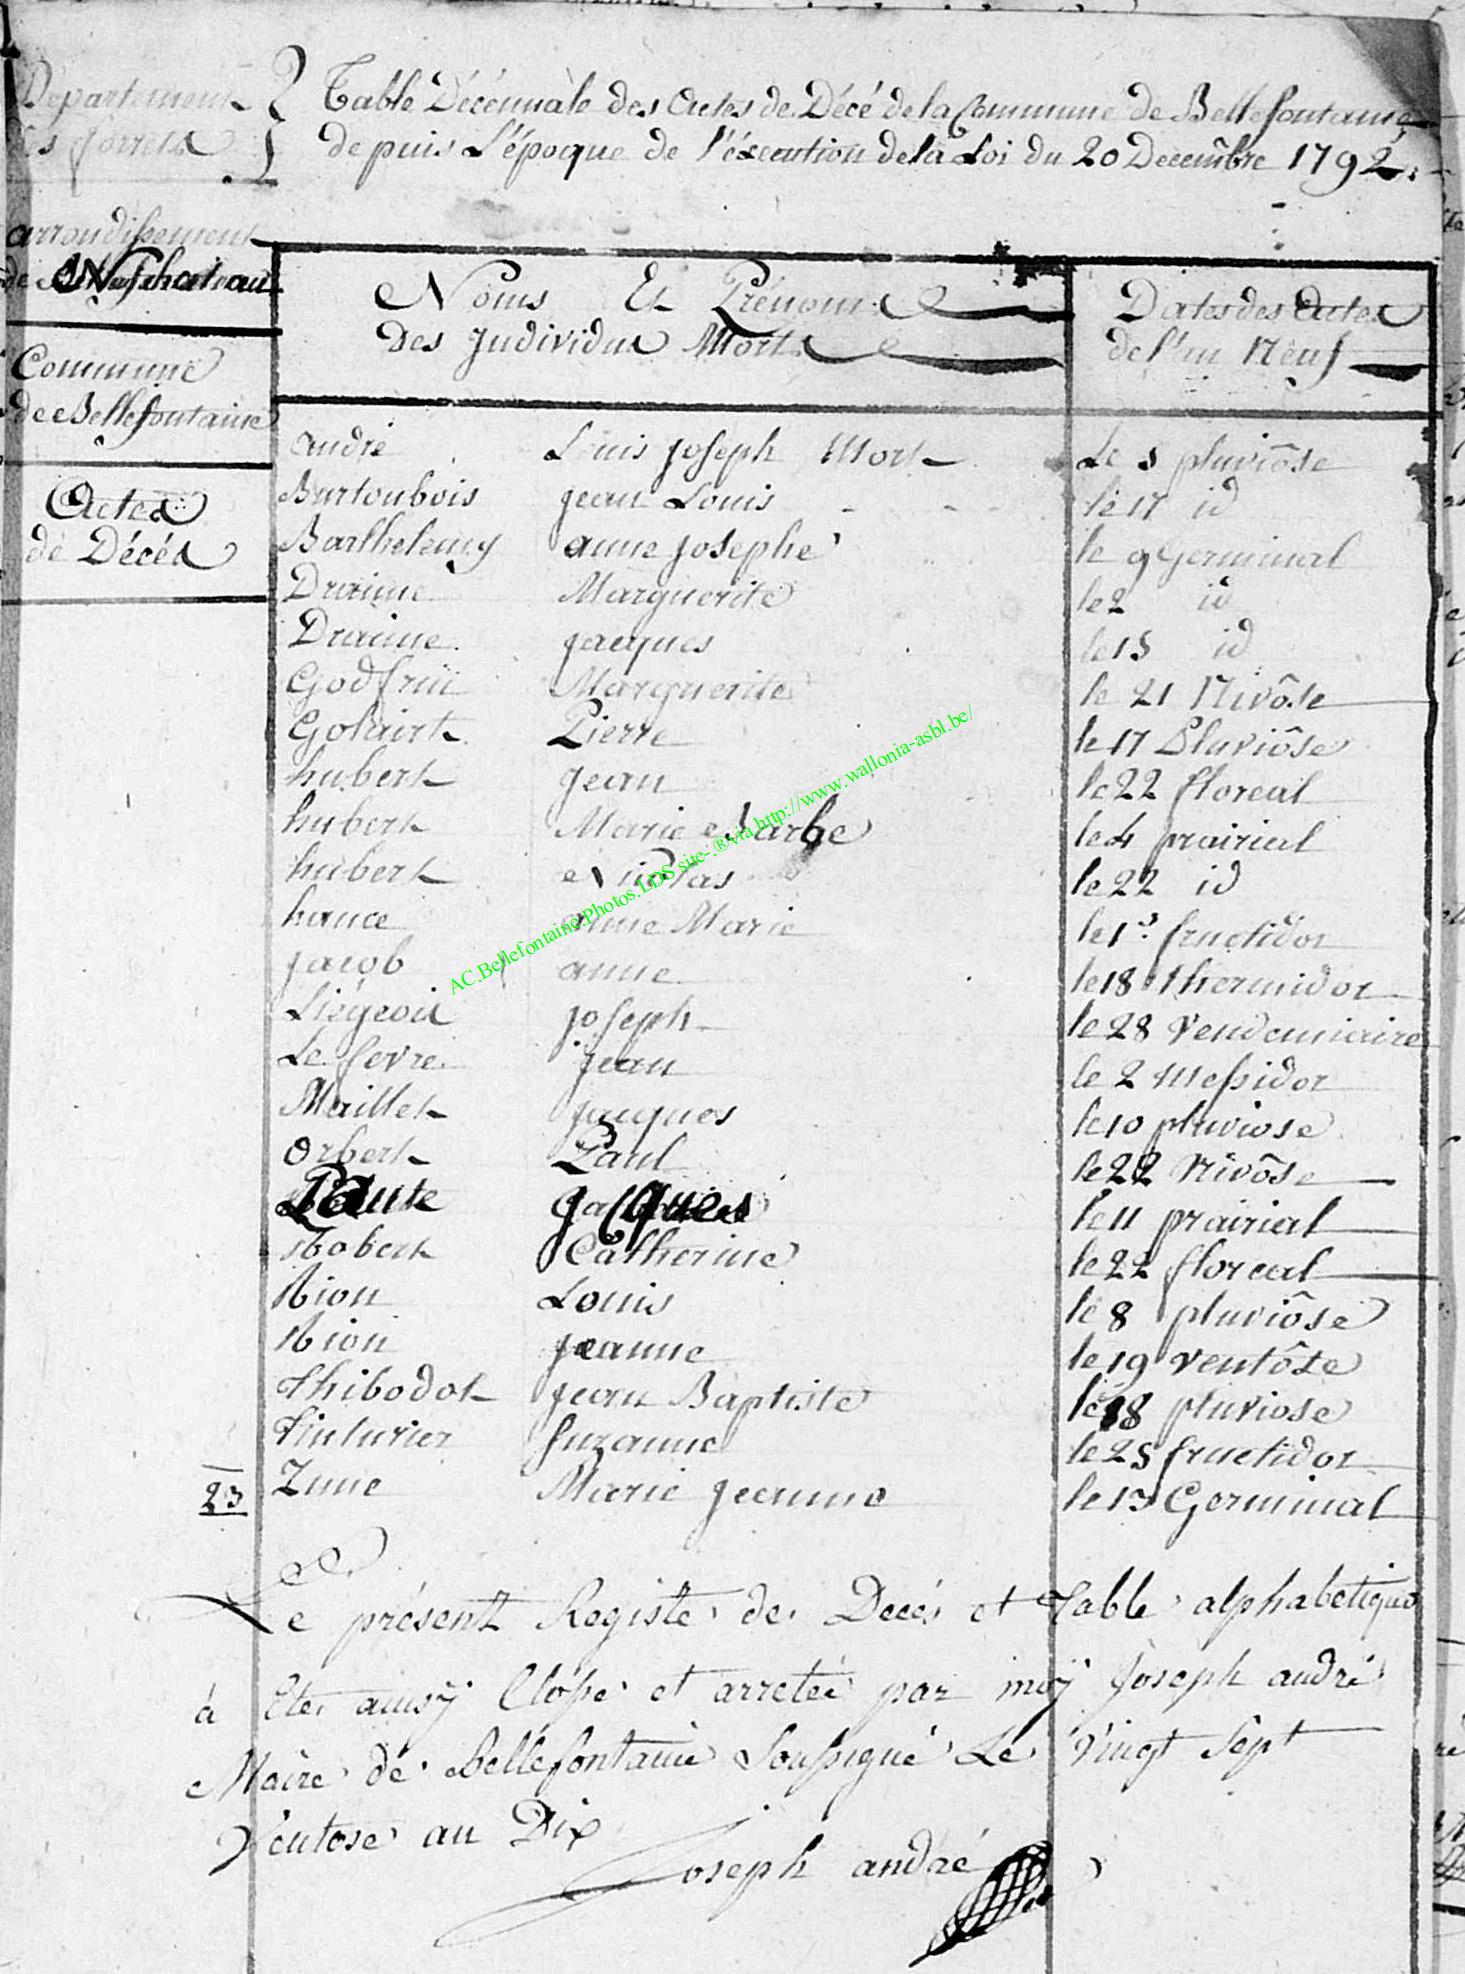 Département
des forrets
Table Décénnale des Actes de Décé de la Commune de Bellefontaine
depuis L'époque de l'éxecution de la Loi du 20 Decembre 1792.
arrondissement
de Neufchateau
Commune
de Bellefontaine
Actes
de Décés
Noms Et Prénoms
Des Individus Morts
Dates des Actes
de l'an Neuf
andré Louis Joseph Mort Le 5 pluviôse
Burtoubois jean Louis le 17 id
Barthelemy anne josephe le 9 Germinal
Draime Marguerite le 2 id
Draime jacques le 15 id
Godfrin Marguerite le 21 Nivôse
Gofairt Pierre le 17 Pluviôse
hubert jean le 22 floreal
hubert Marie Barbe le 4 prairial
hubert Nicolas le 22 id
hance anne Marie le 1er fructidor
jacob anne le 18 thermidor
Liégeois joseph le 28 Vendemiaire
Le fevre jean le 2 messidor
Maillet jacques le 10 pluviose
Orbert Paul le 22 Nivôse
Paute Jacques le 11 prairial
Robert Catherine le 22 floreal
Rion Louis le 8 pluviôse
Rion jeanne le 19 ventôse
thibodot jean Baptiste le 18 pluviose
Vinturier suzanne le 25 fructidor
23 Zune Marie jeanne le 13 Germinal
Le présent Registe de Decés et Table alphabetique
à Eté ainsÿ Closse et arretée par moÿ Joseph andré
Maire de Bellefontaine Soussigné Le Vingt Sept
Ventose an Dix
Joseph andré
AC.Bellefontaine.Photos.LDS site-.®via.http://www.wallonia-asbl.be/